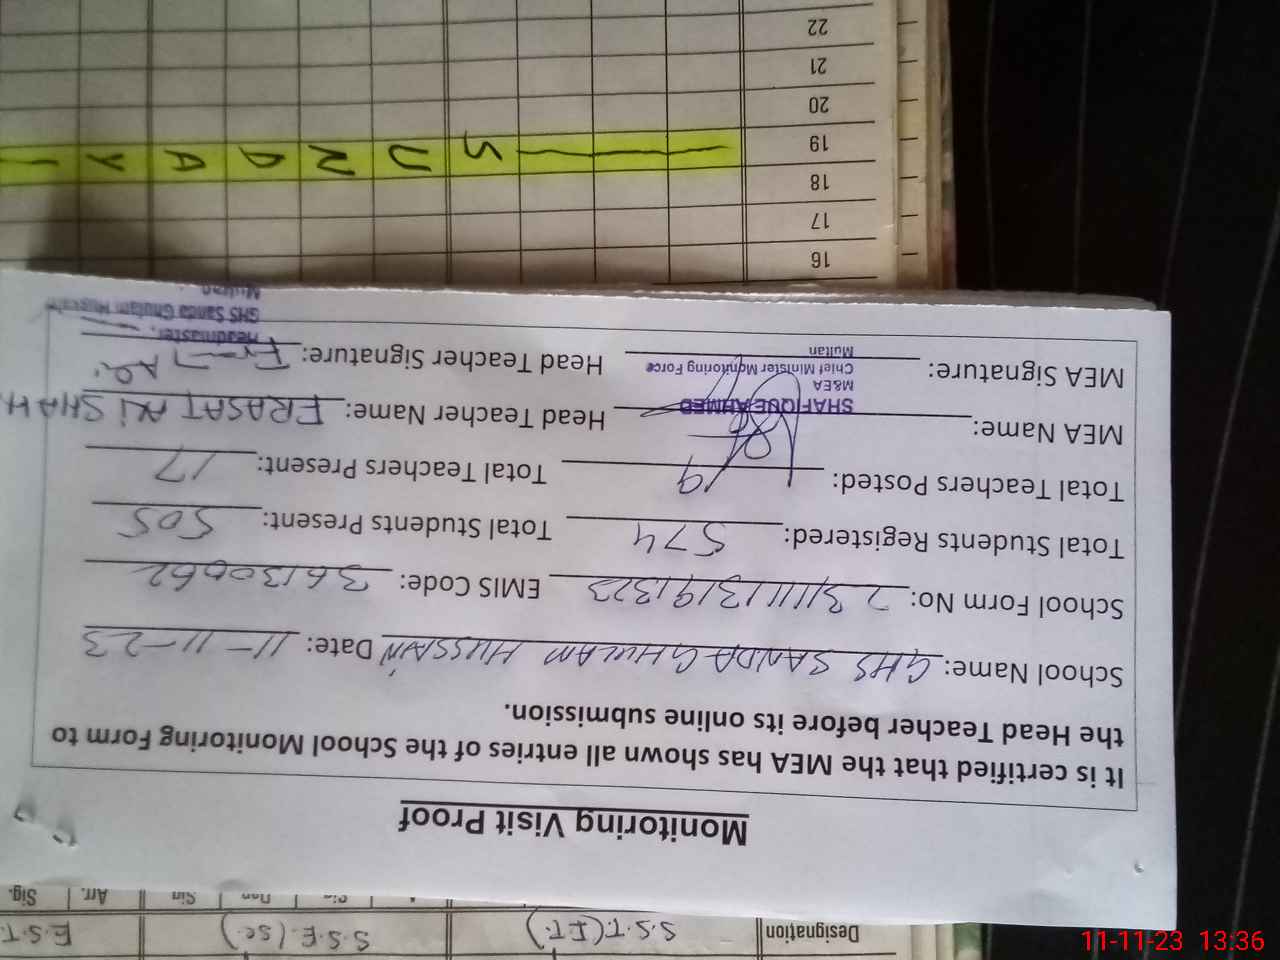 Monitoring Visit Proof
It is certified that the MEA has shown all entries of the School Monitoring Form to
the Head Teacher before its online submission.
School Name: GHS SANDA GHULAM HUSSAIN Date: 11-11-23
School Form No: 23111113191323 EMIS Code: 36130062
Total Students Registered: 574 Total Students Present: 505
Total Teachers Posted: 19 Total Teachers Present: 17
MEA Name: SHAFIQUE AHMED Head Teacher Name: FRASAT ALI SHAH
M&EA
Chief Minister Monitoring Force
Multan
MEA Signature: Head Teacher Signature:
Headmaster,
GHS Sanda Ghulam
Multan
16
17
18
19 SUNDAY
20
21
22
Designation S.S.T (I.T) S.S.E (Sc) E.S.T
Sig. Arr. Sig.
11-11-23 13:36